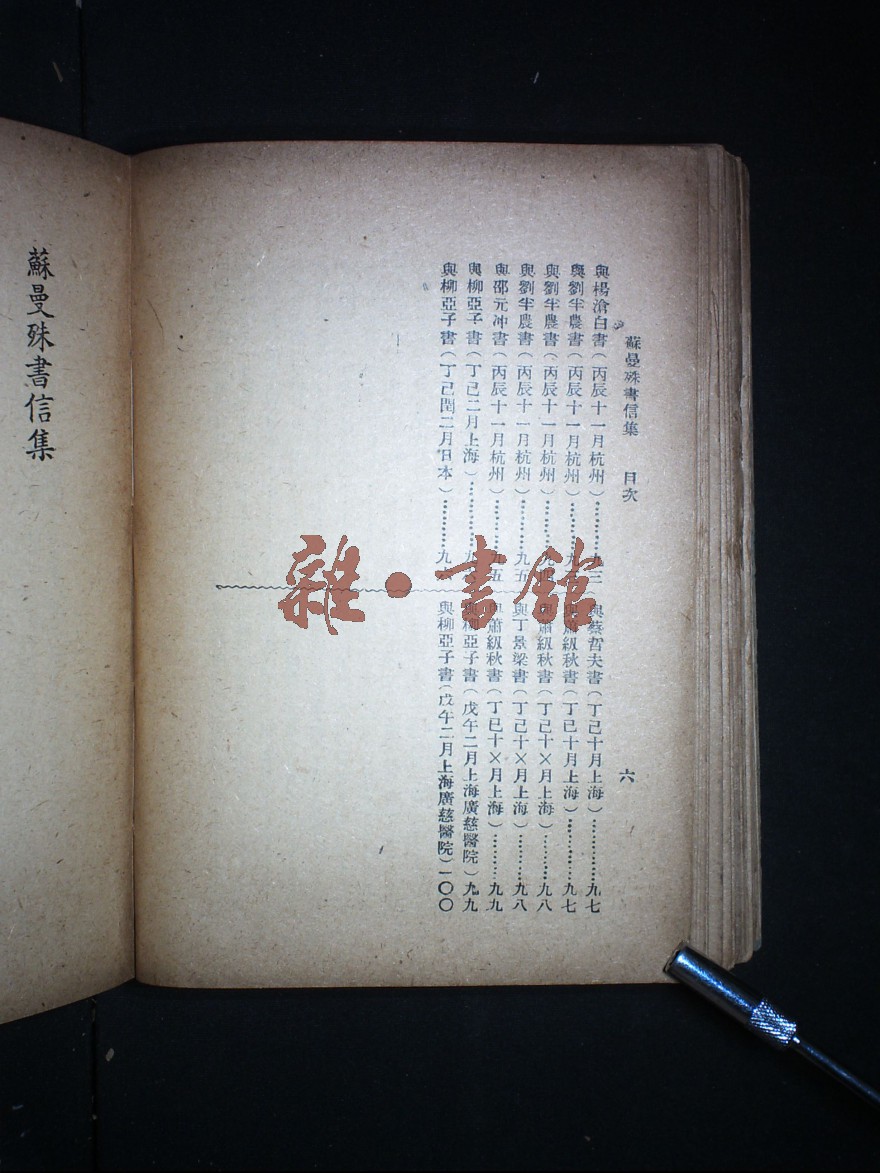 蘇曼殊書信集 目次 六
與楊滄白書(丙辰十一月杭州)………九三
與劉半農書(丙辰十一月杭州)………九
與劉半農書(丙辰十一月杭州)………九四
與劉半農書(丙辰十一月杭州)………九五
與邵元冲書(丙辰十一月杭州)………九五
與柳亞子書(丁巳二月上海)…………九
與柳亞子書(丁巳閏二月日本)………九
與蔡哲夫書(丁巳十月上海)…………九七
與蕭紉秋書(丁巳十月上海)…………九七
與蕭紉秋書(丁巳十×月上海)………九八
與丁景梁書(丁巳十×月上海)………九八
與蕭紉秋書(丁巳十×月上海)………九九
與柳亞子書(戊午二月上海廣慈醫院)九九
與柳亞子書(戊午二月上海廣慈醫院)一〇〇
蘇曼殊書信集
雜·書館